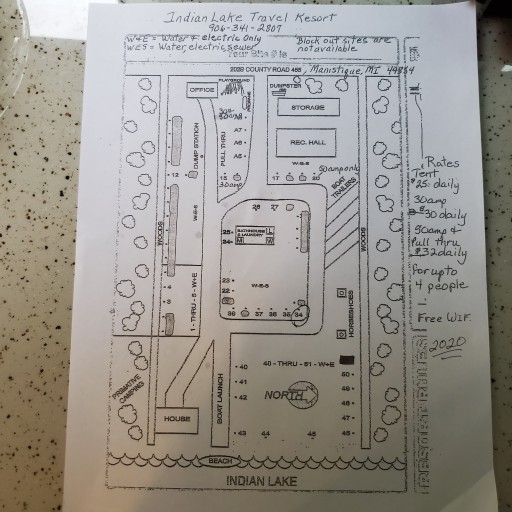 Indian Lake Travel Resort
906-341-2807
W+E = Water & electric Only
WES = Water, electric, sewer
Block out sites are
not available
2025 COUNTY ROAD 455, Manistique, MI 49854
OFFICE
PLAYGROUND
DUMPSTER
STORAGE
REC. HALL
W-E-S
DUMP STATION
PULL THRU
A7 -
A6 -
A5 -
30amp
50amp only
- 12 -
15
17
20
BOAT
TRAILERS
W-E-S
WOODS
WOODS
26
27
25 -
24 -
BATHHOUSE
& LAUNDRY
L
M
W
23 -
22 -
W-E-S
36
37
35
34
4
3
1 - THRU - 8 - W+E
HORSESHOES
40 - THRU - 51 - W+E
- 40
- 41
- 42
- 43
44
50 -
49 -
48 -
47 -
NORTH
PRIMATIVE
CAMPING
HOUSE
BOAT LAUNCH
BEACH
INDIAN LAKE
Rates
Tent
$25. daily
30amp
$30 daily
50amp &
Pull thru
$32 daily
for up to
4 people
Free WIF
2020